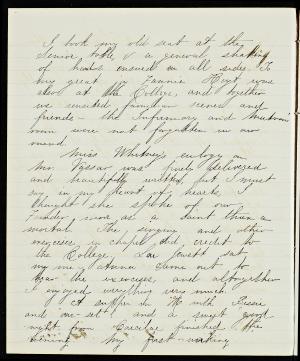 I took my old seat at the
Senior table, & a general shaking
of hands ensued on all sides. To
my great joy Fannie Hoyt was
also at the College, and together
we visited familiar scenes and
friends - the Infirmary and
were were not forgotten in our
round.
Miss Whitney's eulogy on
Mr. Vassar was finely delivered
and beautifully written, but I must
say in my heart of hearts I
thought she spoke of our
Founder more as a saint than a
mortal. The singing and other
exercises in chapel did credit to
the College. Lou Jewett sat
by me; Anna came out to
the exercises, and altogether
I enjoyed everything very much.
At supper in the
and and a sweet good
night from finished the
evening. My first waking